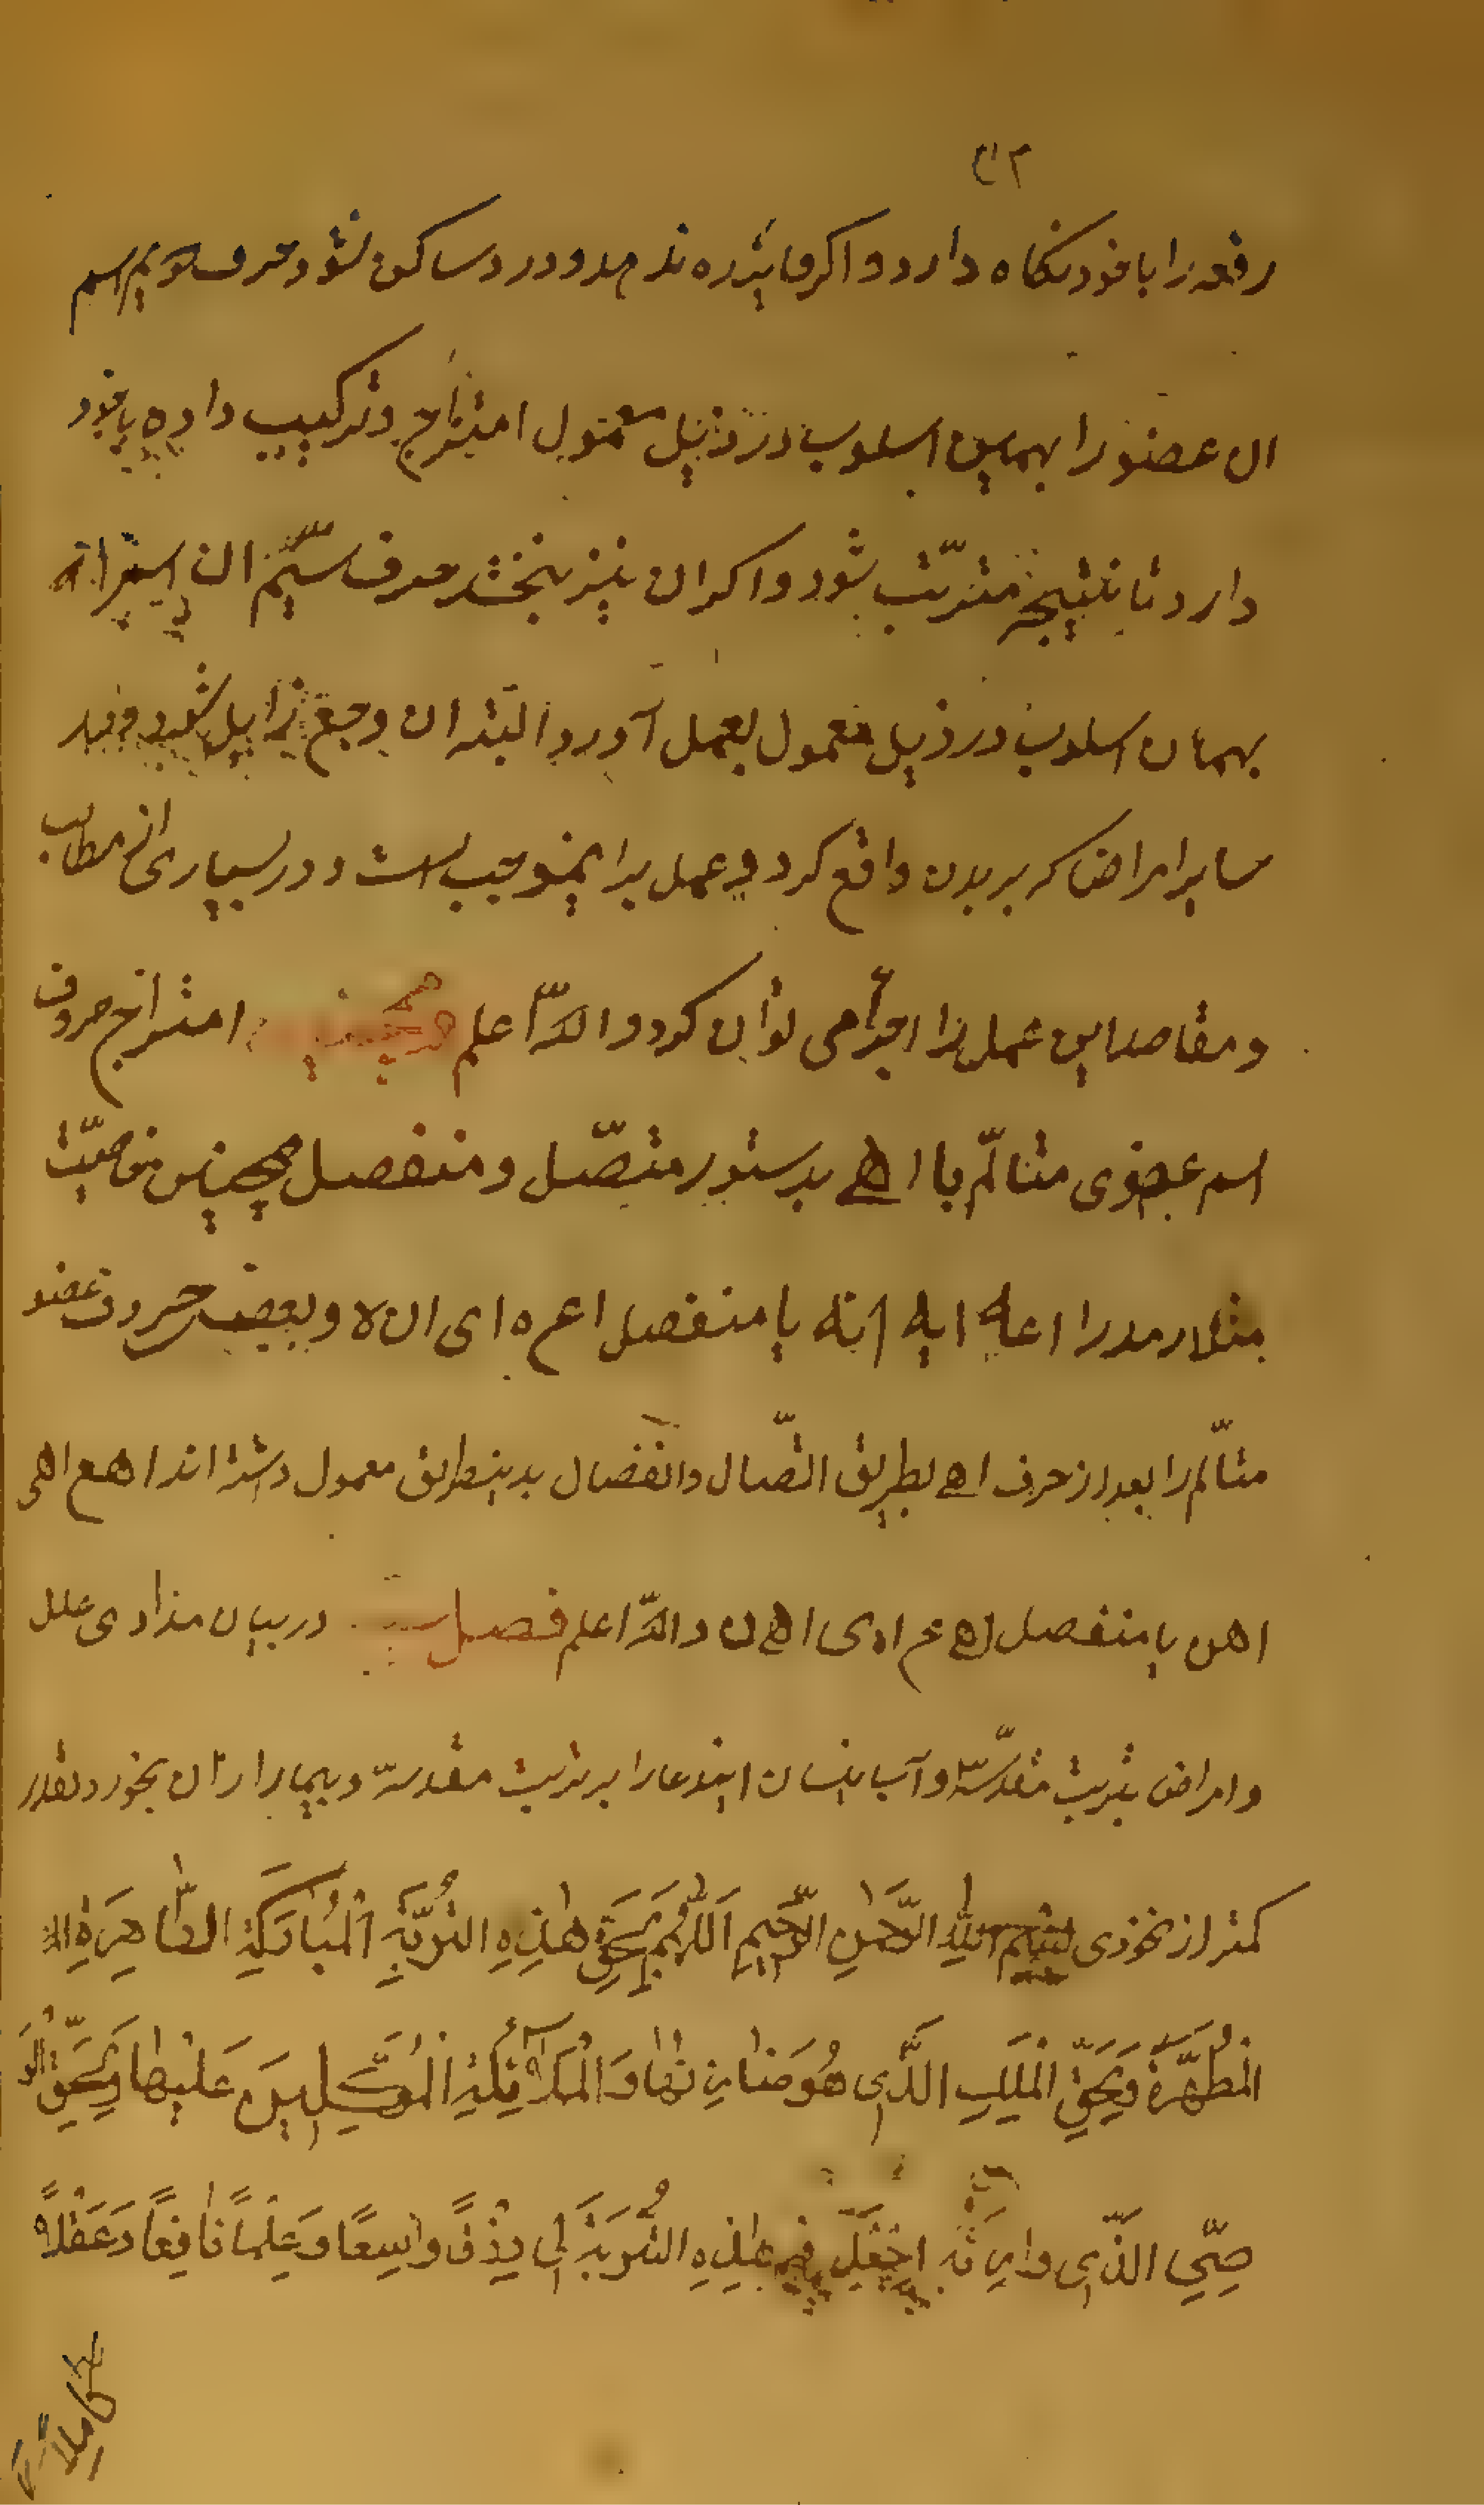 رقعه را با خود نكاه دارد و اكر فائده ندهد و درد ساكن نشود حرف دويم اسم
ان عضو را بهمين اسلوب در ذيل معمول امتزاج و تركيب داده با خود
دارد تا نتيجه مترتّب شود و اكر ان نيز نبخشد حرف سيّم ان اسم را به
بهمان اسلوب در ذيل معمول بعمل آورد البته ان وجع زايل شود و
ساير امراض كه بر بدن واقع كردد عمل بدايموجب است و در بسيارى از مطالب
و مقاصد اين عمل را اجرا مى توان كرد و اللّه اعلم امتزاج حروف
اسم عضوى متالّم با اهى بدستور متصّل و منفصل همچنين خاصيّت
مثلا رمد را اعه ايه انه يا منفصل اع ه اى ه ان ه و بعضى حروف عضو
متالّم را بعد از حرف اهى بطريق اتّصال و انفصال بدينطريق معمول داشته اند اهع اهى
اهن يا منفصل اه ع اه ى اه ن و اللّه اعلم فصل در بيان مداوى علل
و امراض بتربت مقدسّه و آب نيسان ايندعا را بر تربت مقدسه و بيمار را از ان بخورد بقدر
كمتر از نخودى بِسْمِ اللّهِ الرَّحْمٰنِ الرَّحِيمِ اَللّٰهُمَّ بِحَقِّ هٰذِهِ التُّرْبَةِ الْمُبَارَكَةِ الطّٰاهِرَةِ
الْمُطَهَّرَةِ وَبِحَقِّ الْمَلَكِ الَّذِى هُوَ خٰازِنُهٰا وَالْمَلآئِكَةِ الْمُوَكِّلِينَ عَلَيْهٰا وَبِحَقِّ الْوَ
صِىِّ الَّذِى وٰارَتْهُ اِجْعَلْ هٰذِهِ التُّرْبَةَ لِى رِزْقًا وٰاسِعًا وَعِلْمًا نٰافِعًا وَعَقْلاً
كاملا